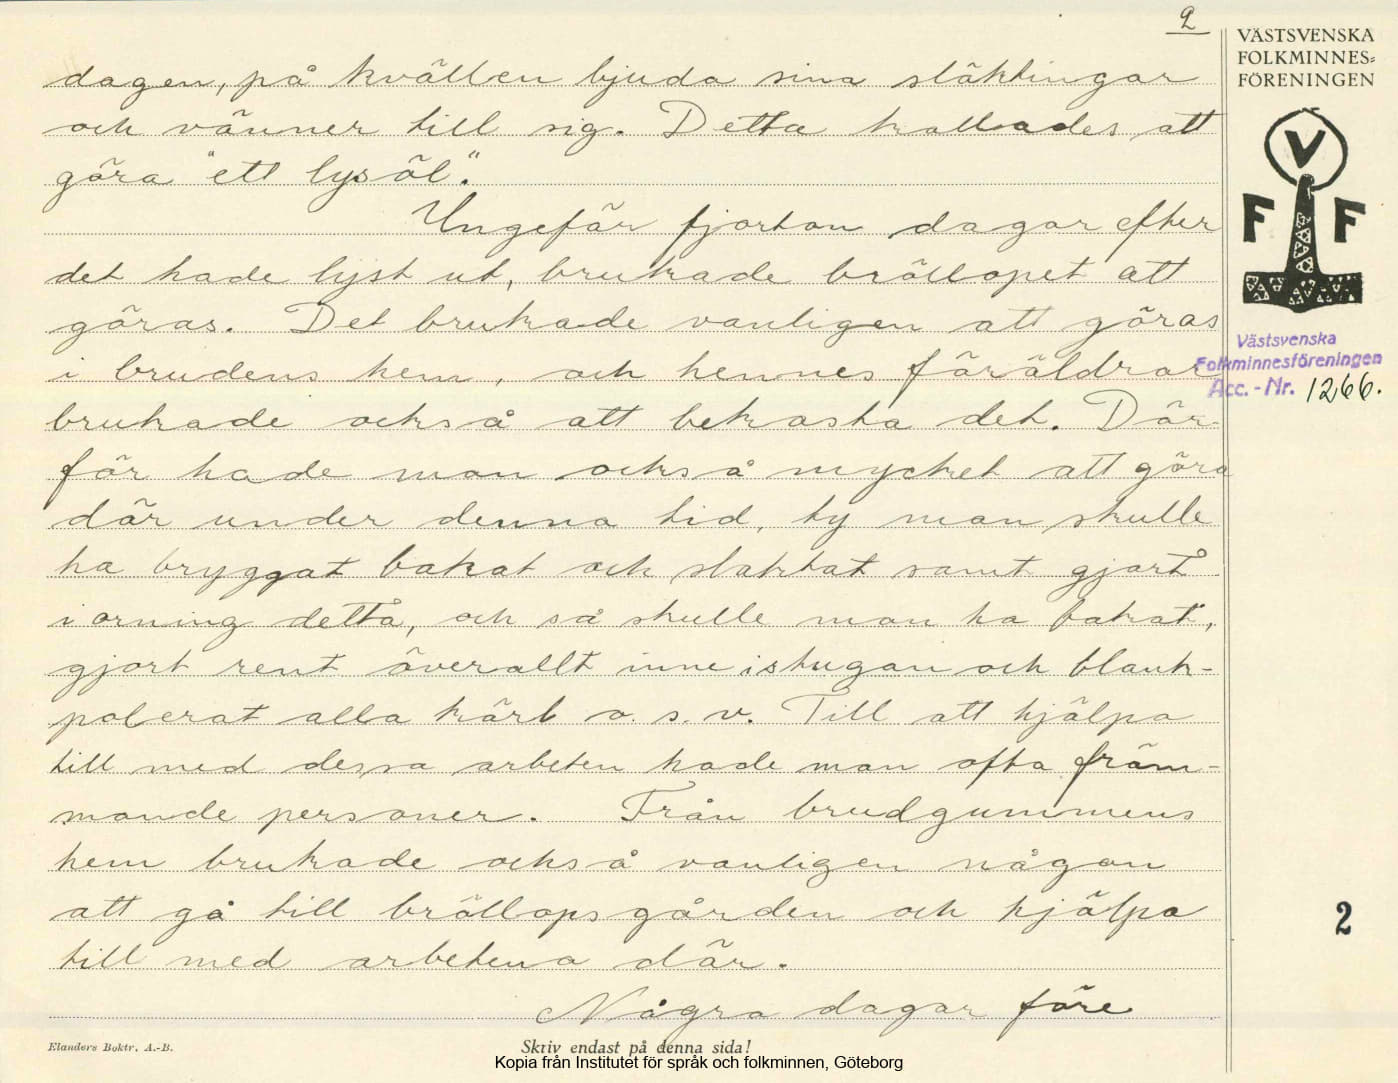 2
VÄSTSVENSKA
FOLKMINNES=
FÖRENINGEN
V
F F
Västsvenska
Folkminnesföreningen
Acc.-Nr. 1266.
dagen, på kvällen bjuda sina släktingar
och vänner till sig. Detta kallades att
göra "ett lysöl".
Ungefär fjorton dagar efter
det hade lyst ut, brukade bröllopet att
göras. Det brukade vanligen att göras
i brudens hem, och hennes föräldrar
brukade också att bekosta det. Där-
för hade man också mycket att göra
där under denna tid, ty man skulle
ha bryggat bakat och slaktat samt gjort
i orning detta, och så skulle man ha fakat,
gjort rent överallt inne i stugan och blank-
polerat alla kärl o. s. v. Till att hjälpa
till med dessa arbeten hade man ofta främ-
mande personer. Från brudgummens
hem brukade också vanligen någon
att gå till bröllopsgården och hjälpa
till med arbetena där.
Några dagar före
2
Elanders Boktr. A.-B.
Skriv endast på denna sida!
Kopia från Institutet för språk och folkminnen, Göteborg